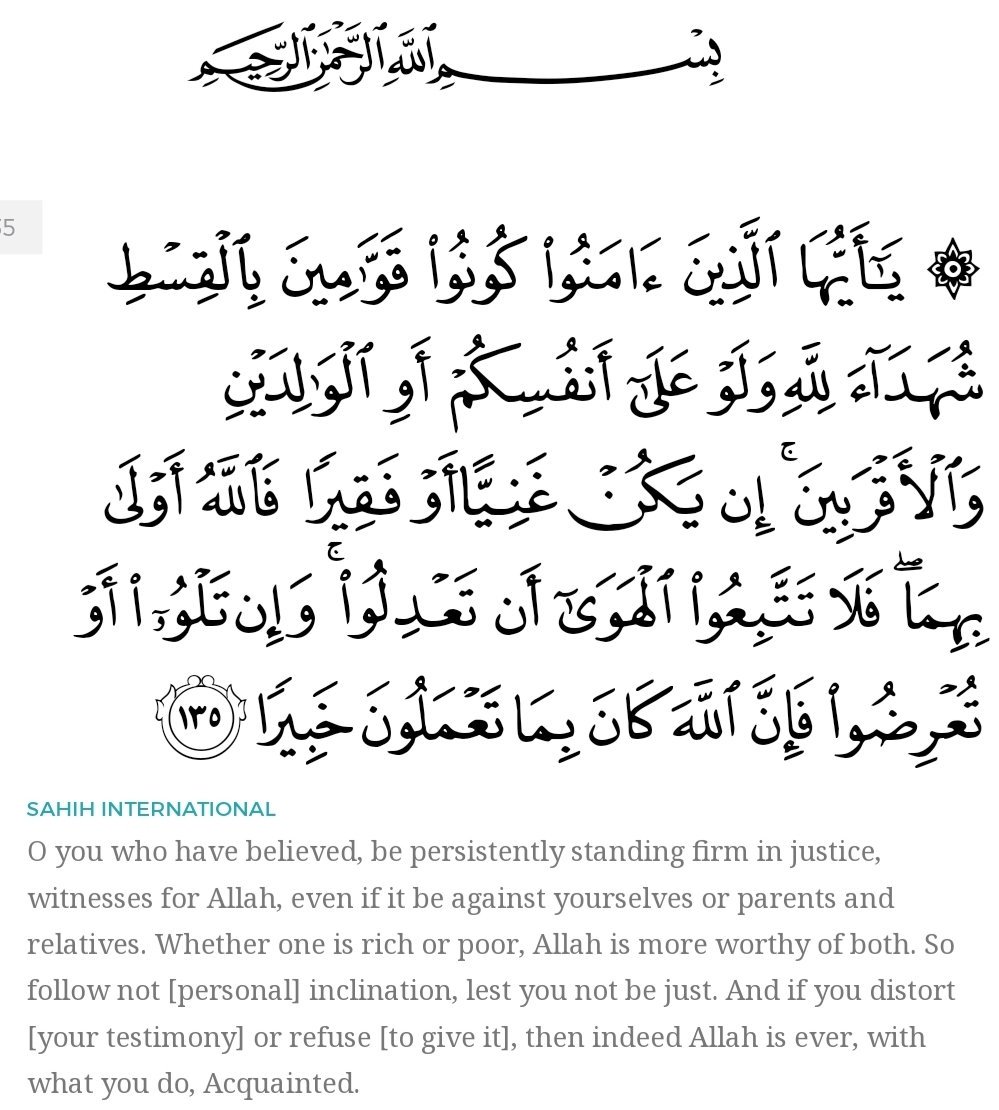 بِسْمِ ٱللَّهِ ٱلرَّحْمَٰنِ ٱلرَّحِيمِ
۞ يَـٰٓأَيُّهَا ٱلَّذِينَ ءَامَنُوا۟ كُونُوا۟ قَوَّٰمِينَ بِٱلْقِسْطِ
شُهَدَآءَ لِلَّهِ وَلَوْ عَلَىٰٓ أَنفُسِكُمْ أَوِ ٱلْوَٰلِدَيْنِ
وَٱلْأَقْرَبِينَ ۚ إِن يَكُنْ غَنِيًّا أَوْ فَقِيرًا فَٱللَّهُ أَوْلَىٰ
بِهِمَا ۖ فَلَا تَتَّبِعُوا۟ ٱلْهَوَىٰٓ أَن تَعْدِلُوا۟ ۚ وَإِن تَلْوُۥٓا۟ أَوْ
تُعْرِضُوا۟ فَإِنَّ ٱللَّهَ كَانَ بِمَا تَعْمَلُونَ خَبِيرًا ١٣٥
SAHIH INTERNATIONAL
O you who have believed, be persistently standing firm in justice,
witnesses for Allah, even if it be against yourselves or parents and
relatives. Whether one is rich or poor, Allah is more worthy of both. So
follow not [personal] inclination, lest you not be just. And if you distort
[your testimony] or refuse [to give it], then indeed Allah is ever, with
what you do, Acquainted.